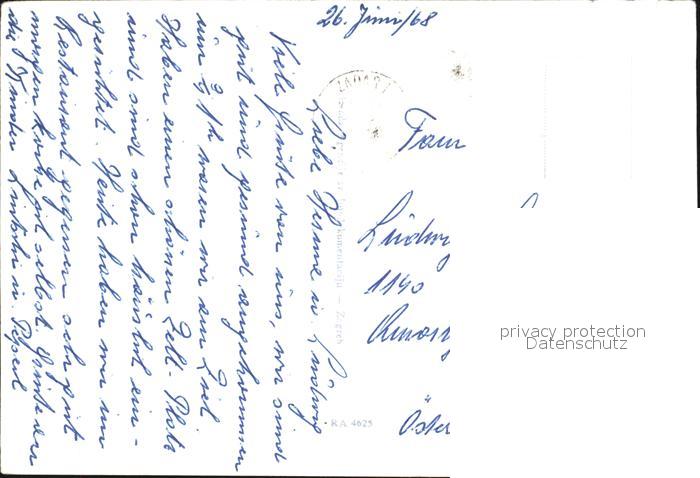 26. Juni/68
Liebe Hermi u. Ludwig
Viele Grüße von uns, wir sind
gut und gesund angekommen
um 3/4 h waren wir am Ziel.
Haben einen schönen Zelt-Platz
und sind schon häuslich ein-
gerichtet. Heute haben wir im
Restaurant gegessen sehr gut
morgen koche ich selbst. Grüße an
die Kinder
ZADAR
Zagreb
RA 4625
Fam
Ludwig
1140
Öster
privacy protection
Datenschutz